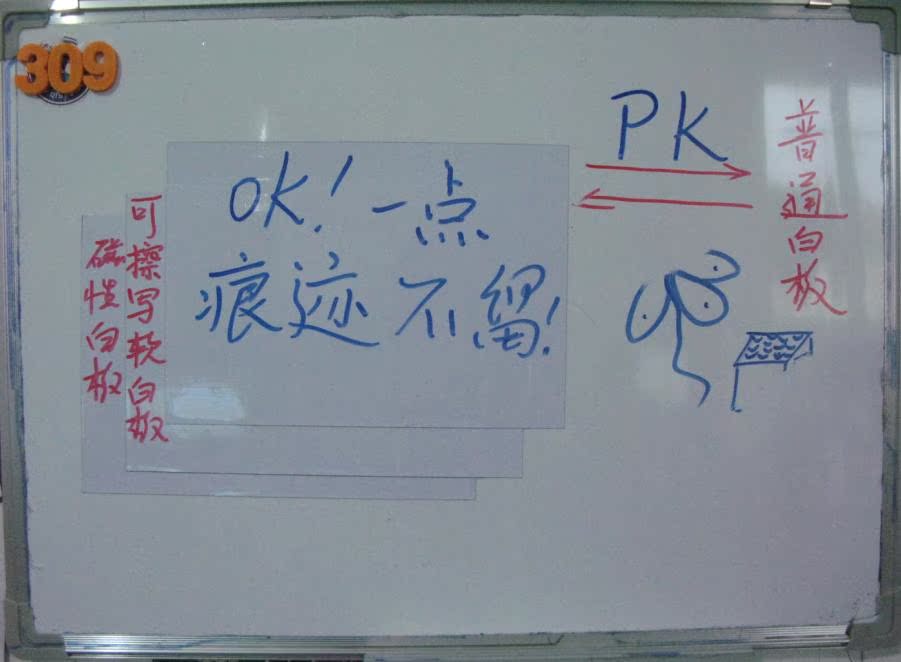 309
PK
普通白板
OK! 一点
痕迹不留!
可擦写软白板
磁性白板